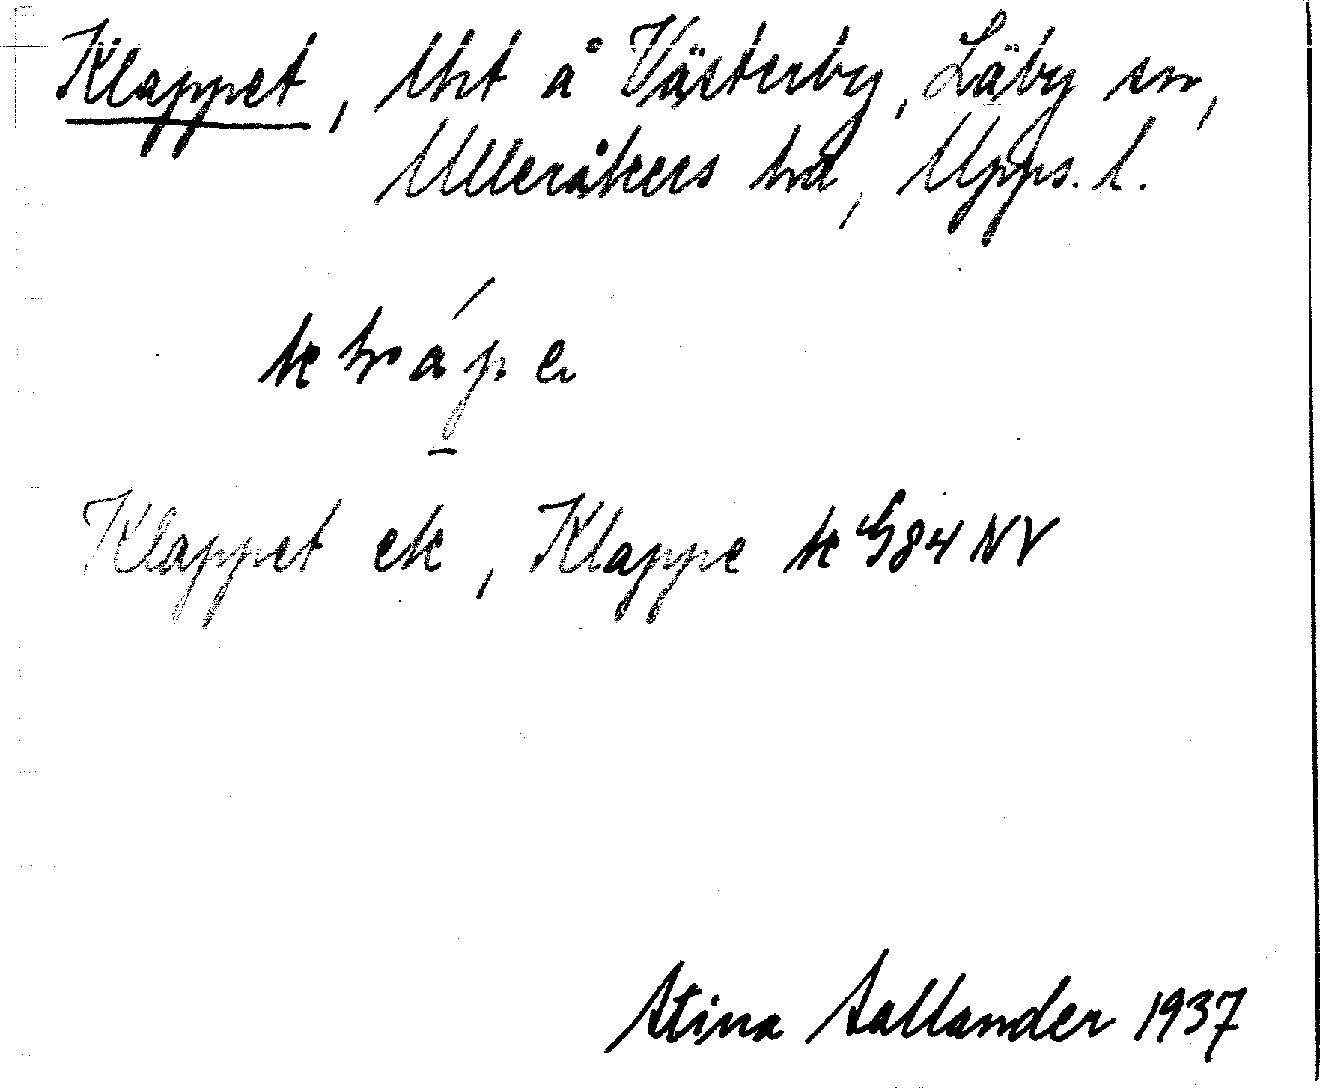 Klappet, lht å Västerby, Läby sn,
Ulleråkers hd, Upps. l.
Klappet ek, Klappe k G84 NV
Stina Sallander 1937